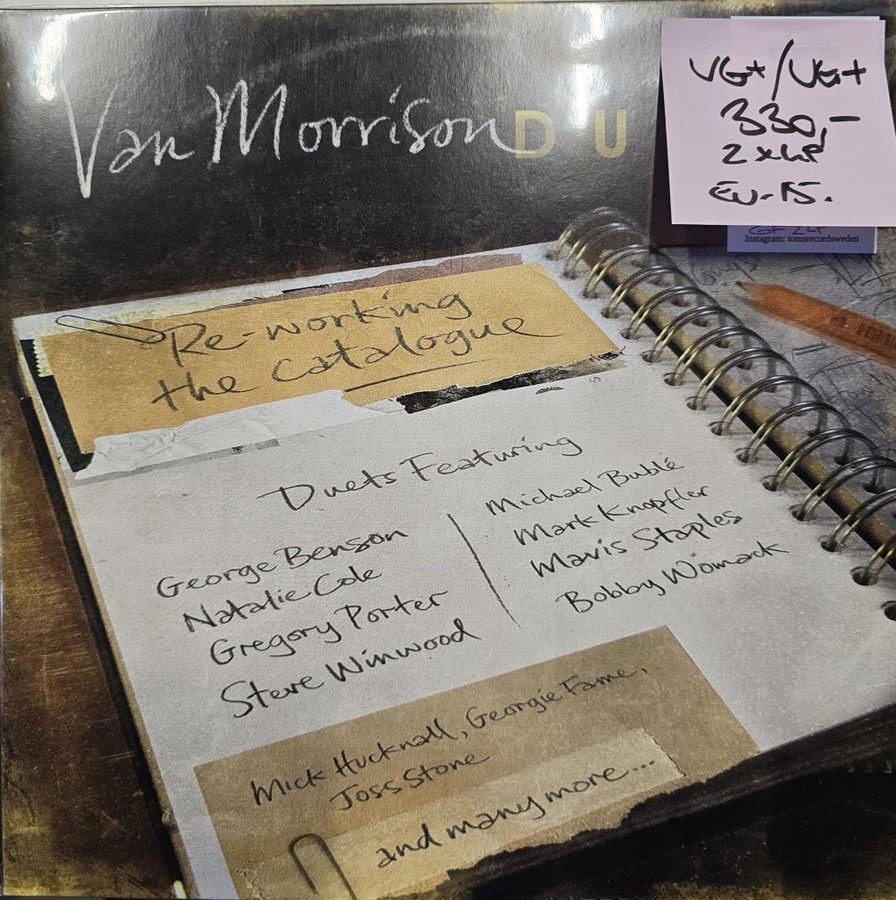 Van Morrison DU
VG+/VG+
330,-
2xLP
EU-15.
GF 2LP
Instagram: tomsrecordsweden
Re-working
the catalogue
Duets Featuring
George Benson
Natalie Cole
Gregory Porter
Steve Winwood
Michael Bublé
Mark Knopfler
Mavis Staples
Bobby Womack
Mick Hucknall, Georgie Fame,
Joss Stone
and many more...